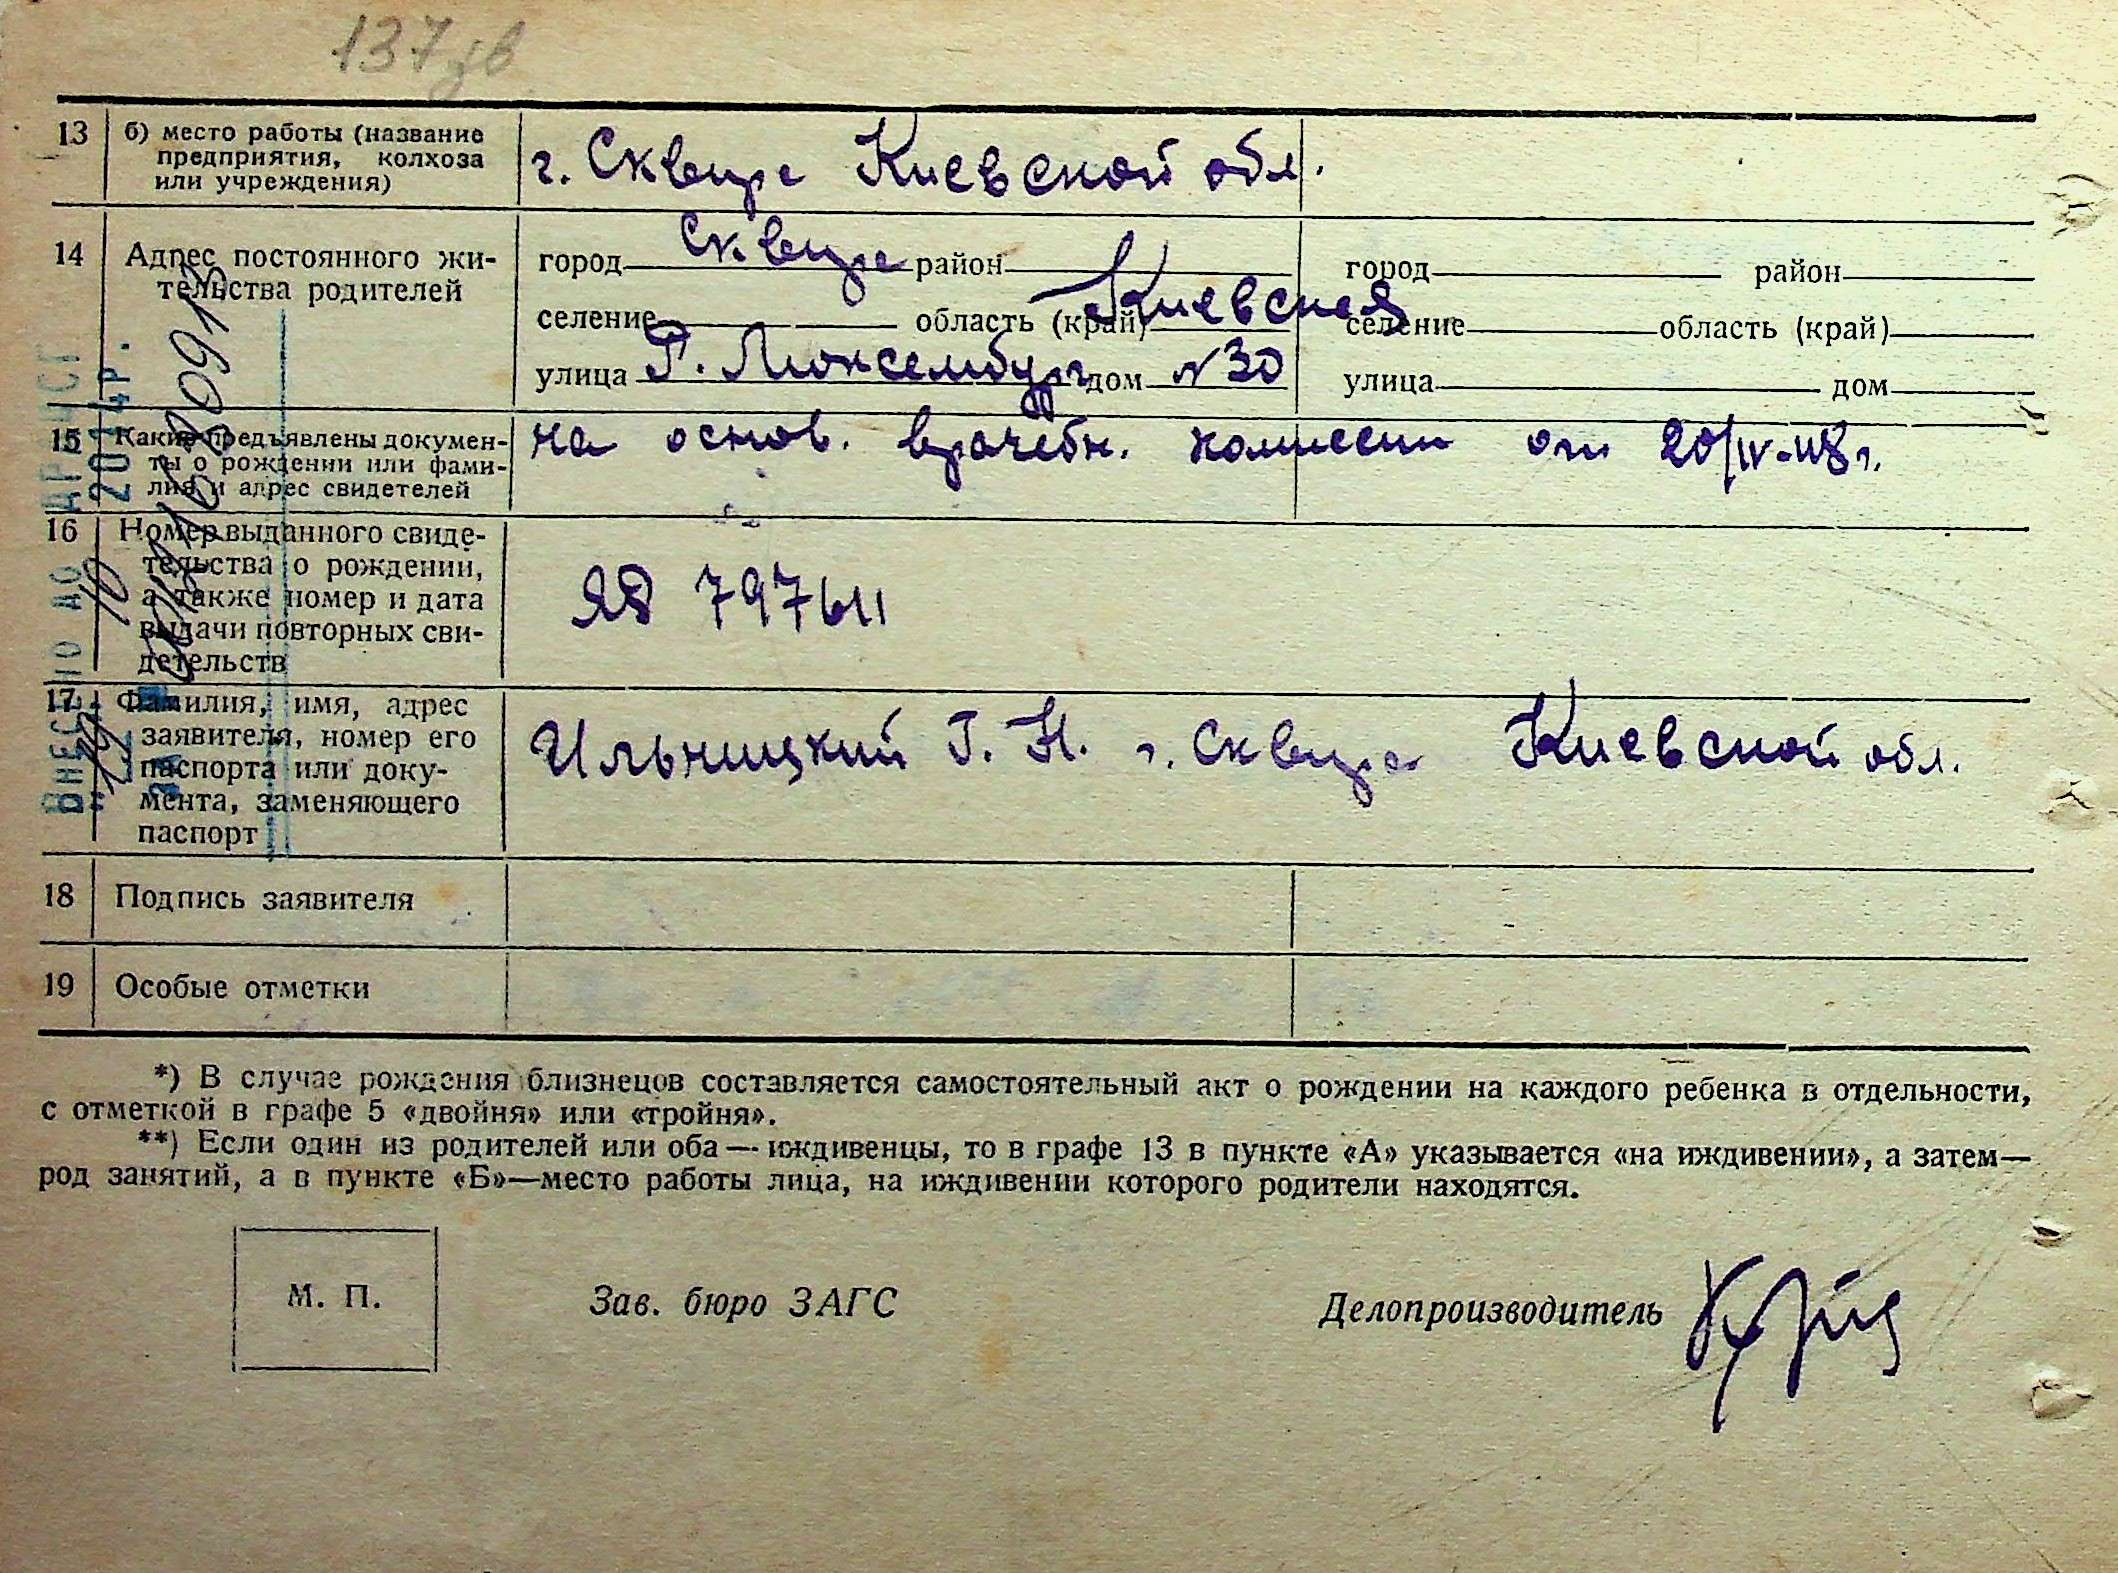 137зв
13 б) место работы (название
предприятия, колхоза
или учреждения)
г. Сквира Киевской обл.
14 Адрес постоянного жи-
тельства родителей
город Сквира район
селение область (край) Киевская
улица Р. Люксембург дом № 30
город район
селение область (край)
улица дом
15 Какие предъявлены докумен-
ты о рождении или фами-
лия и адрес свидетелей
на основ. врачебн. комиссии от 20/IV-48 г.
16 Номер выданного свиде-
тельства о рождении,
а также номер и дата
выдачи повторных сви-
детельств
ЯД 797611
17 Фамилия, имя, адрес
заявителя, номер его
паспорта или доку-
мента, заменяющего
паспорт
Ильницкий Г. Н. г. Сквира Киевской обл.
18 Подпись заявителя
19 Особые отметки
*) В случае рождения близнецов составляется самостоятельный акт о рождении на каждого ребенка в отдельности,
с отметкой в графе 5 «двойня» или «тройня».
**) Если один из родителей или оба — иждивенцы, то в графе 13 в пункте «А» указывается «на иждивении», а затем—
род занятий, а в пункте «Б»—место работы лица, на иждивении которого родители находятся.
М. П.
Зав. бюро ЗАГС
Делопроизводитель
ВНЕСЕНО ДО ДРАЦСГ
2014Р.